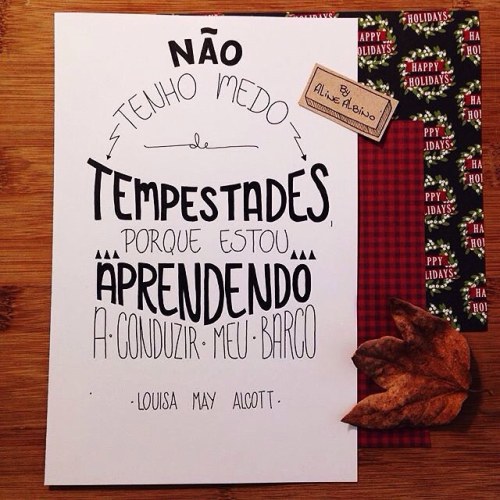 NÃO
TENHO MEDO
de
TEMPESTADES,
PORQUE ESTOU
APRENDENDO
A · CONDUZIR · MEU · BARCO
· LOUISA MAY ALCOTT ·
By
ALINE ALBINO
HAPPY
HOLIDAYS
HAPPY
HOLIDAYS
HAPPY
HOLIDAYS
HAPPY
HOLIDAYS